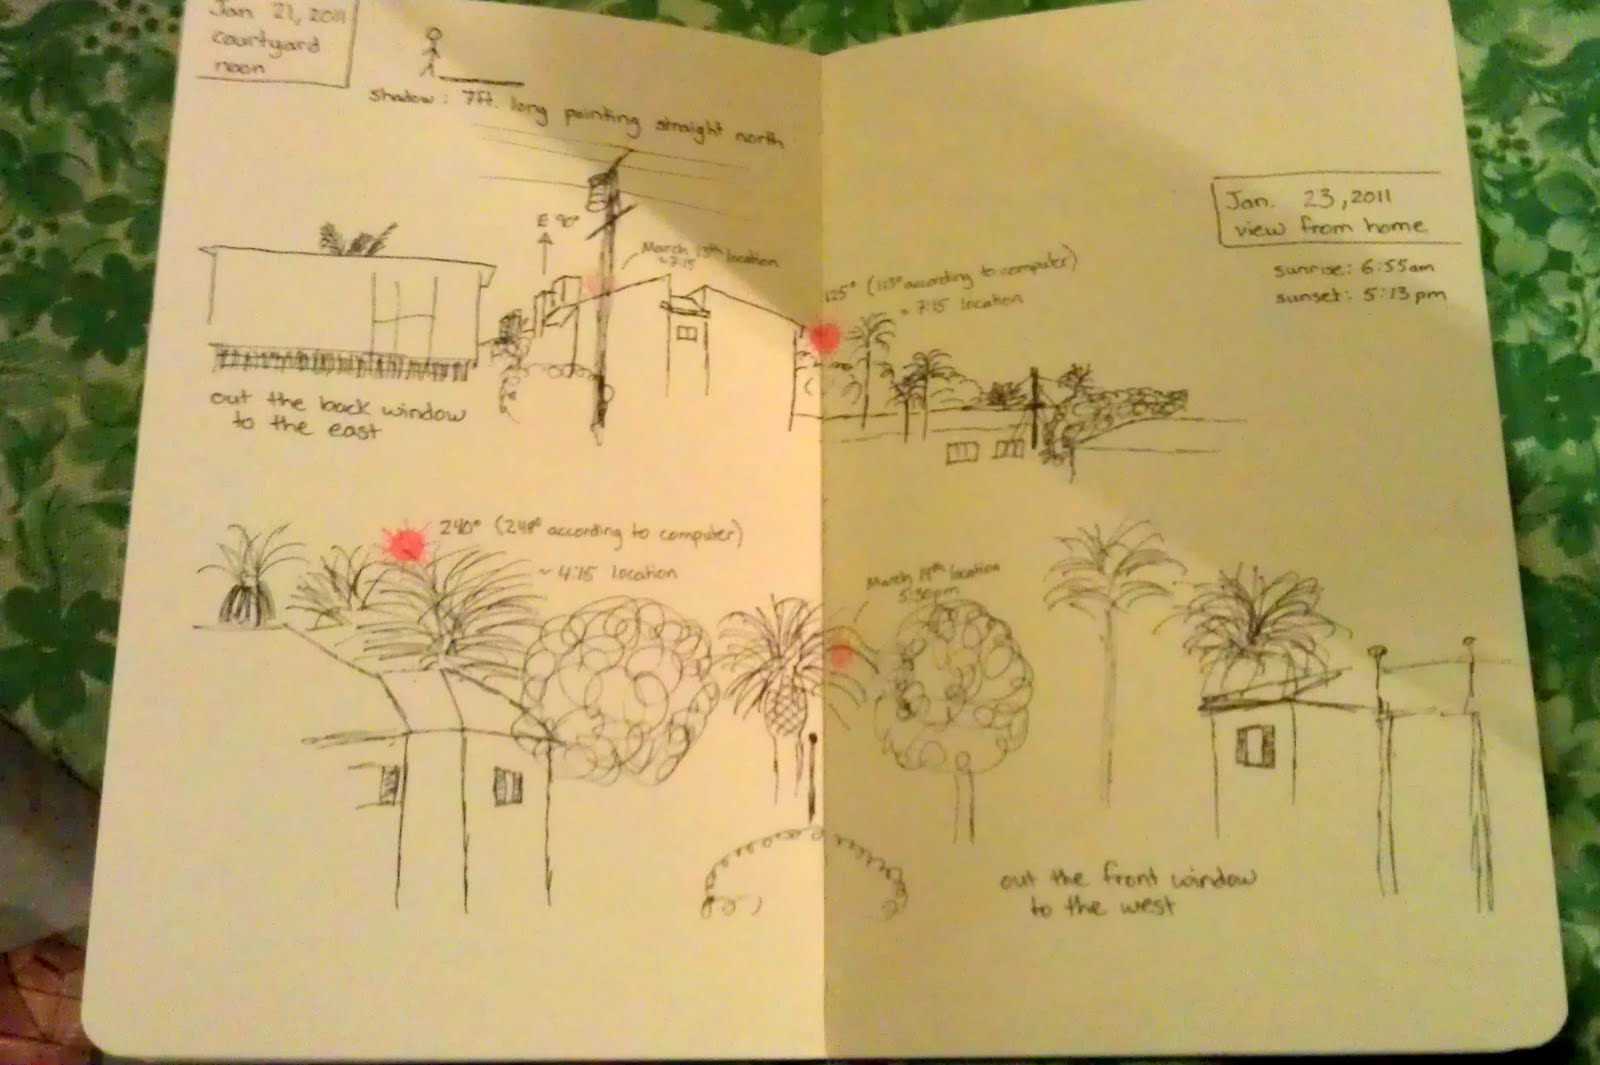 Jan 21, 2011
courtyard
noon
shadow: 7ft. long pointing straight north
E 90°
March 13th location
~7:15
125° (113° according to computer)
~ 7:15 location
Jan. 23, 2011
view from home
sunrise: 6:55am
sunset: 5:13pm
out the back window
to the east
240° (248° according to computer)
~ 4:15 location
March 14th location
5:30pm
out the front window
to the west